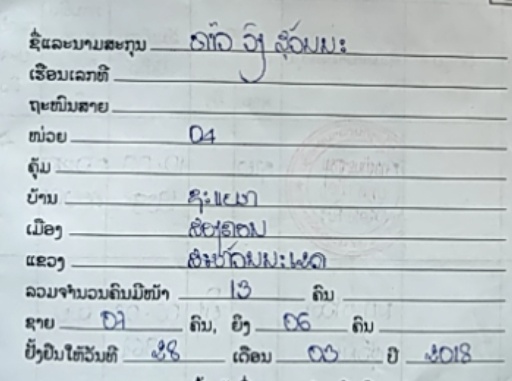 ຊື່ແລະນາມສະກຸນ ທ້າວ ວົງ ສຸວັນນະ
ເຮືອນເລກທີ
ຖະໜົນສາຍ
ໜ່ວຍ 04
ຄຸ້ມ
ບ້ານ
ເມືອງ ສອງຄອນ
ແຂວງ ສະຫວັນນະເຂດ
ລວມຈຳນວນຄົນມີໜ້າ 13 ຄົນ
ຊາຍ 07 ຄົນ, ຍິງ 06 ຄົນ
ຢັ້ງຢືນໃຫ້ວັນທີ 28 ເດືອນ 03 ປີ 2018